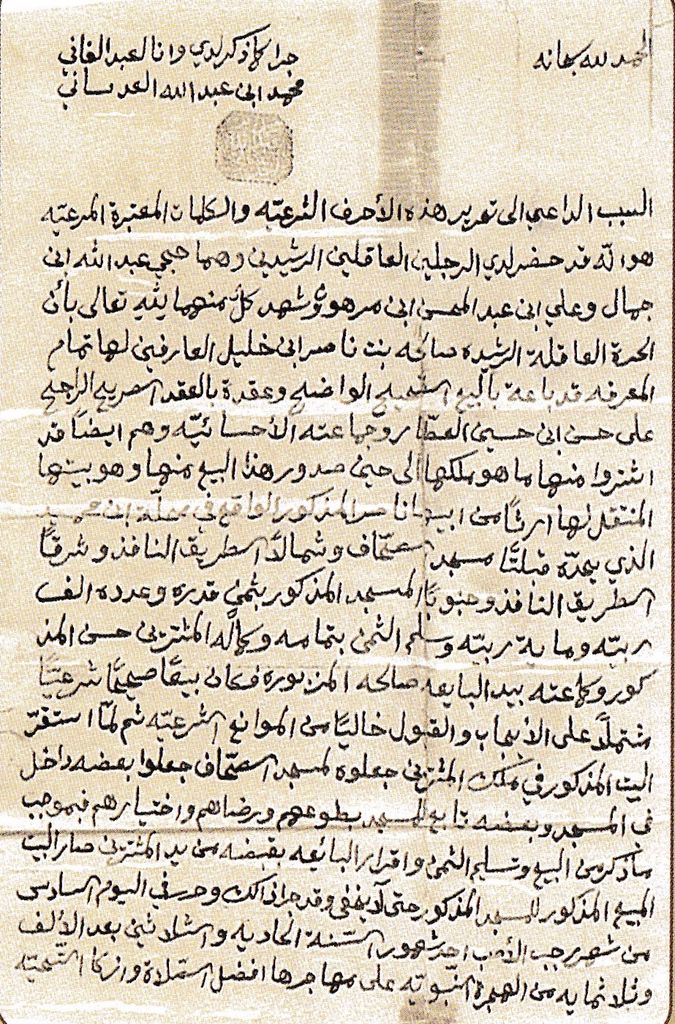 الحمد لله سبحانه
جرا كما ذكر لدي وانا العبد الفاني
محمد ابن عبد الله العدساني
السبب الداعي الى تحرير هذه الأحرف الشرعيّه والكلمات المعتبرة المرعيّه
هو انّه قد حضر لدي الرجلين العاقلين الرشيدين وهما حجي عبد الله ابن
جمال وعلي ابن عبد المحسن ابن مرهون وشهد كلٌ منهما لله تعالى بأن
الحرة العاقلة الرشيده صالحه بنت ناصر ابن خليل العارفين لها تمام
المعرفه قد باعة بالبيع الصحيح الواضح وعقدة بالعقد الصريح الراجح
على حسن ابن حسين العطّار وجماعته الأحسائيّه وهم ايضاً قد
اشتروا منها ما هو ملكها الى حين صدور هذا البيع منها وهو بيتها
المنتقل لها ارثاً من ابيها ناصر المذكور الواقع في محلّة ابن
الذي يحدّه قبلتاً مسجد الصحّاف وشمالاً الطريق النافذ وشرقاً
الطريق النافذ وجنوباً المسجد المذكور بثمن قدره وعدده الف
ربيّه وماية ربيّه وسلم الثمن بتمامه وكماله المشترين حسن المذ
كور وجماعته بيد البايعه صالحه المزبوره فكان بيعاً صحيحاً شرعيّاً
مشتملاً على الأيجاب والقبول خالياً من الموانع الشرعيّه ثم لمّا استقرّ
البيت المذكور في ملك المشترين جعلوه لمسجد الصحّاف جعلوا بعضه داخل
في المسجد وبعضه تابع للمسجد بطوعهم ورضاهم واختيارهم فبموجب
ما ذكر من البيع وتسليم الثمن واقرار البائعه بقبضه من يد المشترين صار البيت
المبيع المذكور للمسجد المذكور حتى لا يخفى وقد جرا ذالك وحرر في اليوم السادس
من شهر رجب الأصب احد شهور السّنة الحاديه والثلاثين بعد الألف
وثلاثمايه من الهجرة النّبويّه على مهاجرها افضل الصّلاة وازكا التّحيّه